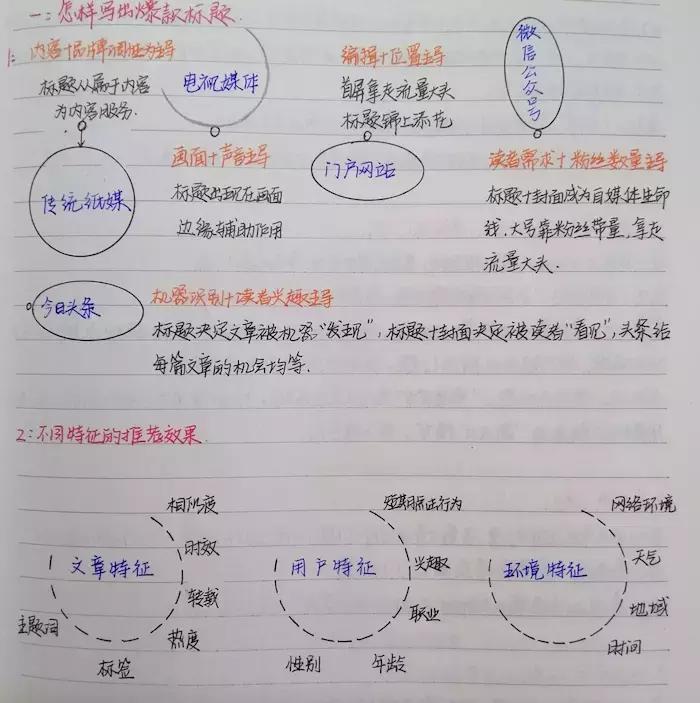 一:怎样写出爆款标题.
1:
内容+品牌调性为主导
标题从属于内容
为内容服务.
传统纸媒
电视媒体
画面+声音主导
标题出现在画面
边缘辅助作用
编辑+位置主导
首屏拿走流量大头
标题锦上添花
门户网站
微信公众号
读者需求+粉丝数量主导
标题+封面成为自媒体生命
线,大号靠粉丝带量,拿走
流量大头.
今日头条
机器识别+读者兴趣主导
标题决定文章被机器“发现”,标题+封面决定被读者“看见”,头条给
每篇文章的机会均等.
2:不同特征的推荐效果.
文章特征
相似度
时效
转载
热度
标签
主题词
用户特征
短期点击行为
兴趣
职业
年龄
性别
环境特征
网络环境
天气
地域
时间